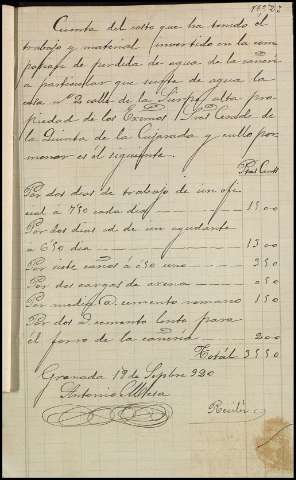 Cuenta del coste que ha tenido el
trabajo y material invertido en la com
postura de perdida de agua de la cañeri
a particular que surte de agua la
casa nº 2 calle de la Sierpe alta pro
piedad de los Excmos Sres Conde de
la Quinta de la Enjarada y cullo por
menor es él siguiente.
Ptas Cents
Por dos dias de trabajo de un ofi
cial á 7'50 cada dia 15 00
Por dos dias id de un ayudante
á 6'50 dia 13 00
Por siete caños á 0'50 uno 3 50
Por dos cargas de arena 0 50
Por media @. cemento romano 1 50
Por dos @ cemento lento para
él forro de la cañeria 2 00
Totál 35 50
Granada 19 de Septbre 920
Antonio Mesa
Recibí